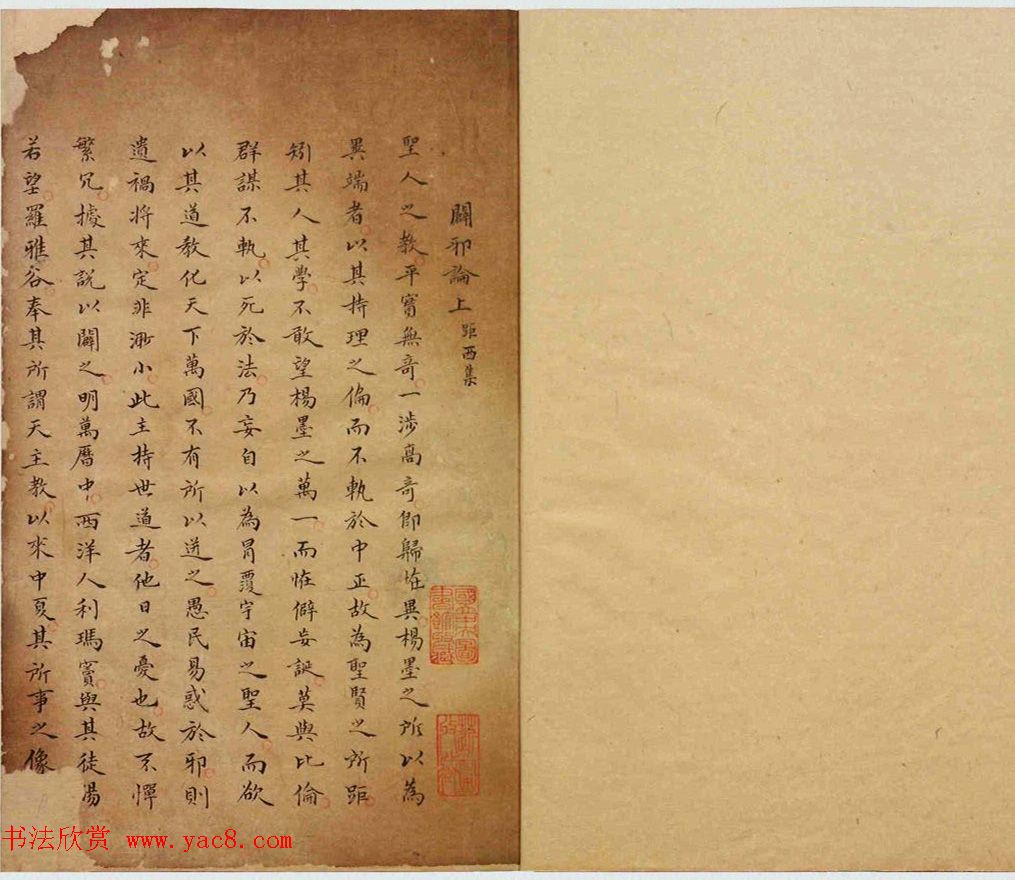 闢邪論上 距西集
聖人之教平實無奇一涉高奇即歸恠異楊墨之所以為
異端者以其持理之偏而不軌於中正故為聖賢之所距
矧其人其學不敢望楊墨之萬一而恠僻妄誕莫與比倫
群謀不軌以死於法乃妄自以為冐覆宇宙之聖人而欲
以其道教化天下萬國不有所以迸之愚民易惑於邪則
遺禍將來定非渺小此主持世道者他日之憂也故不憚
繁冗據其說以闢之明萬曆中西洋人利瑪竇與其徒湯
若望羅雅谷奉其所謂天主教以來中夏其所事之像
书法欣赏 www.yac8.com